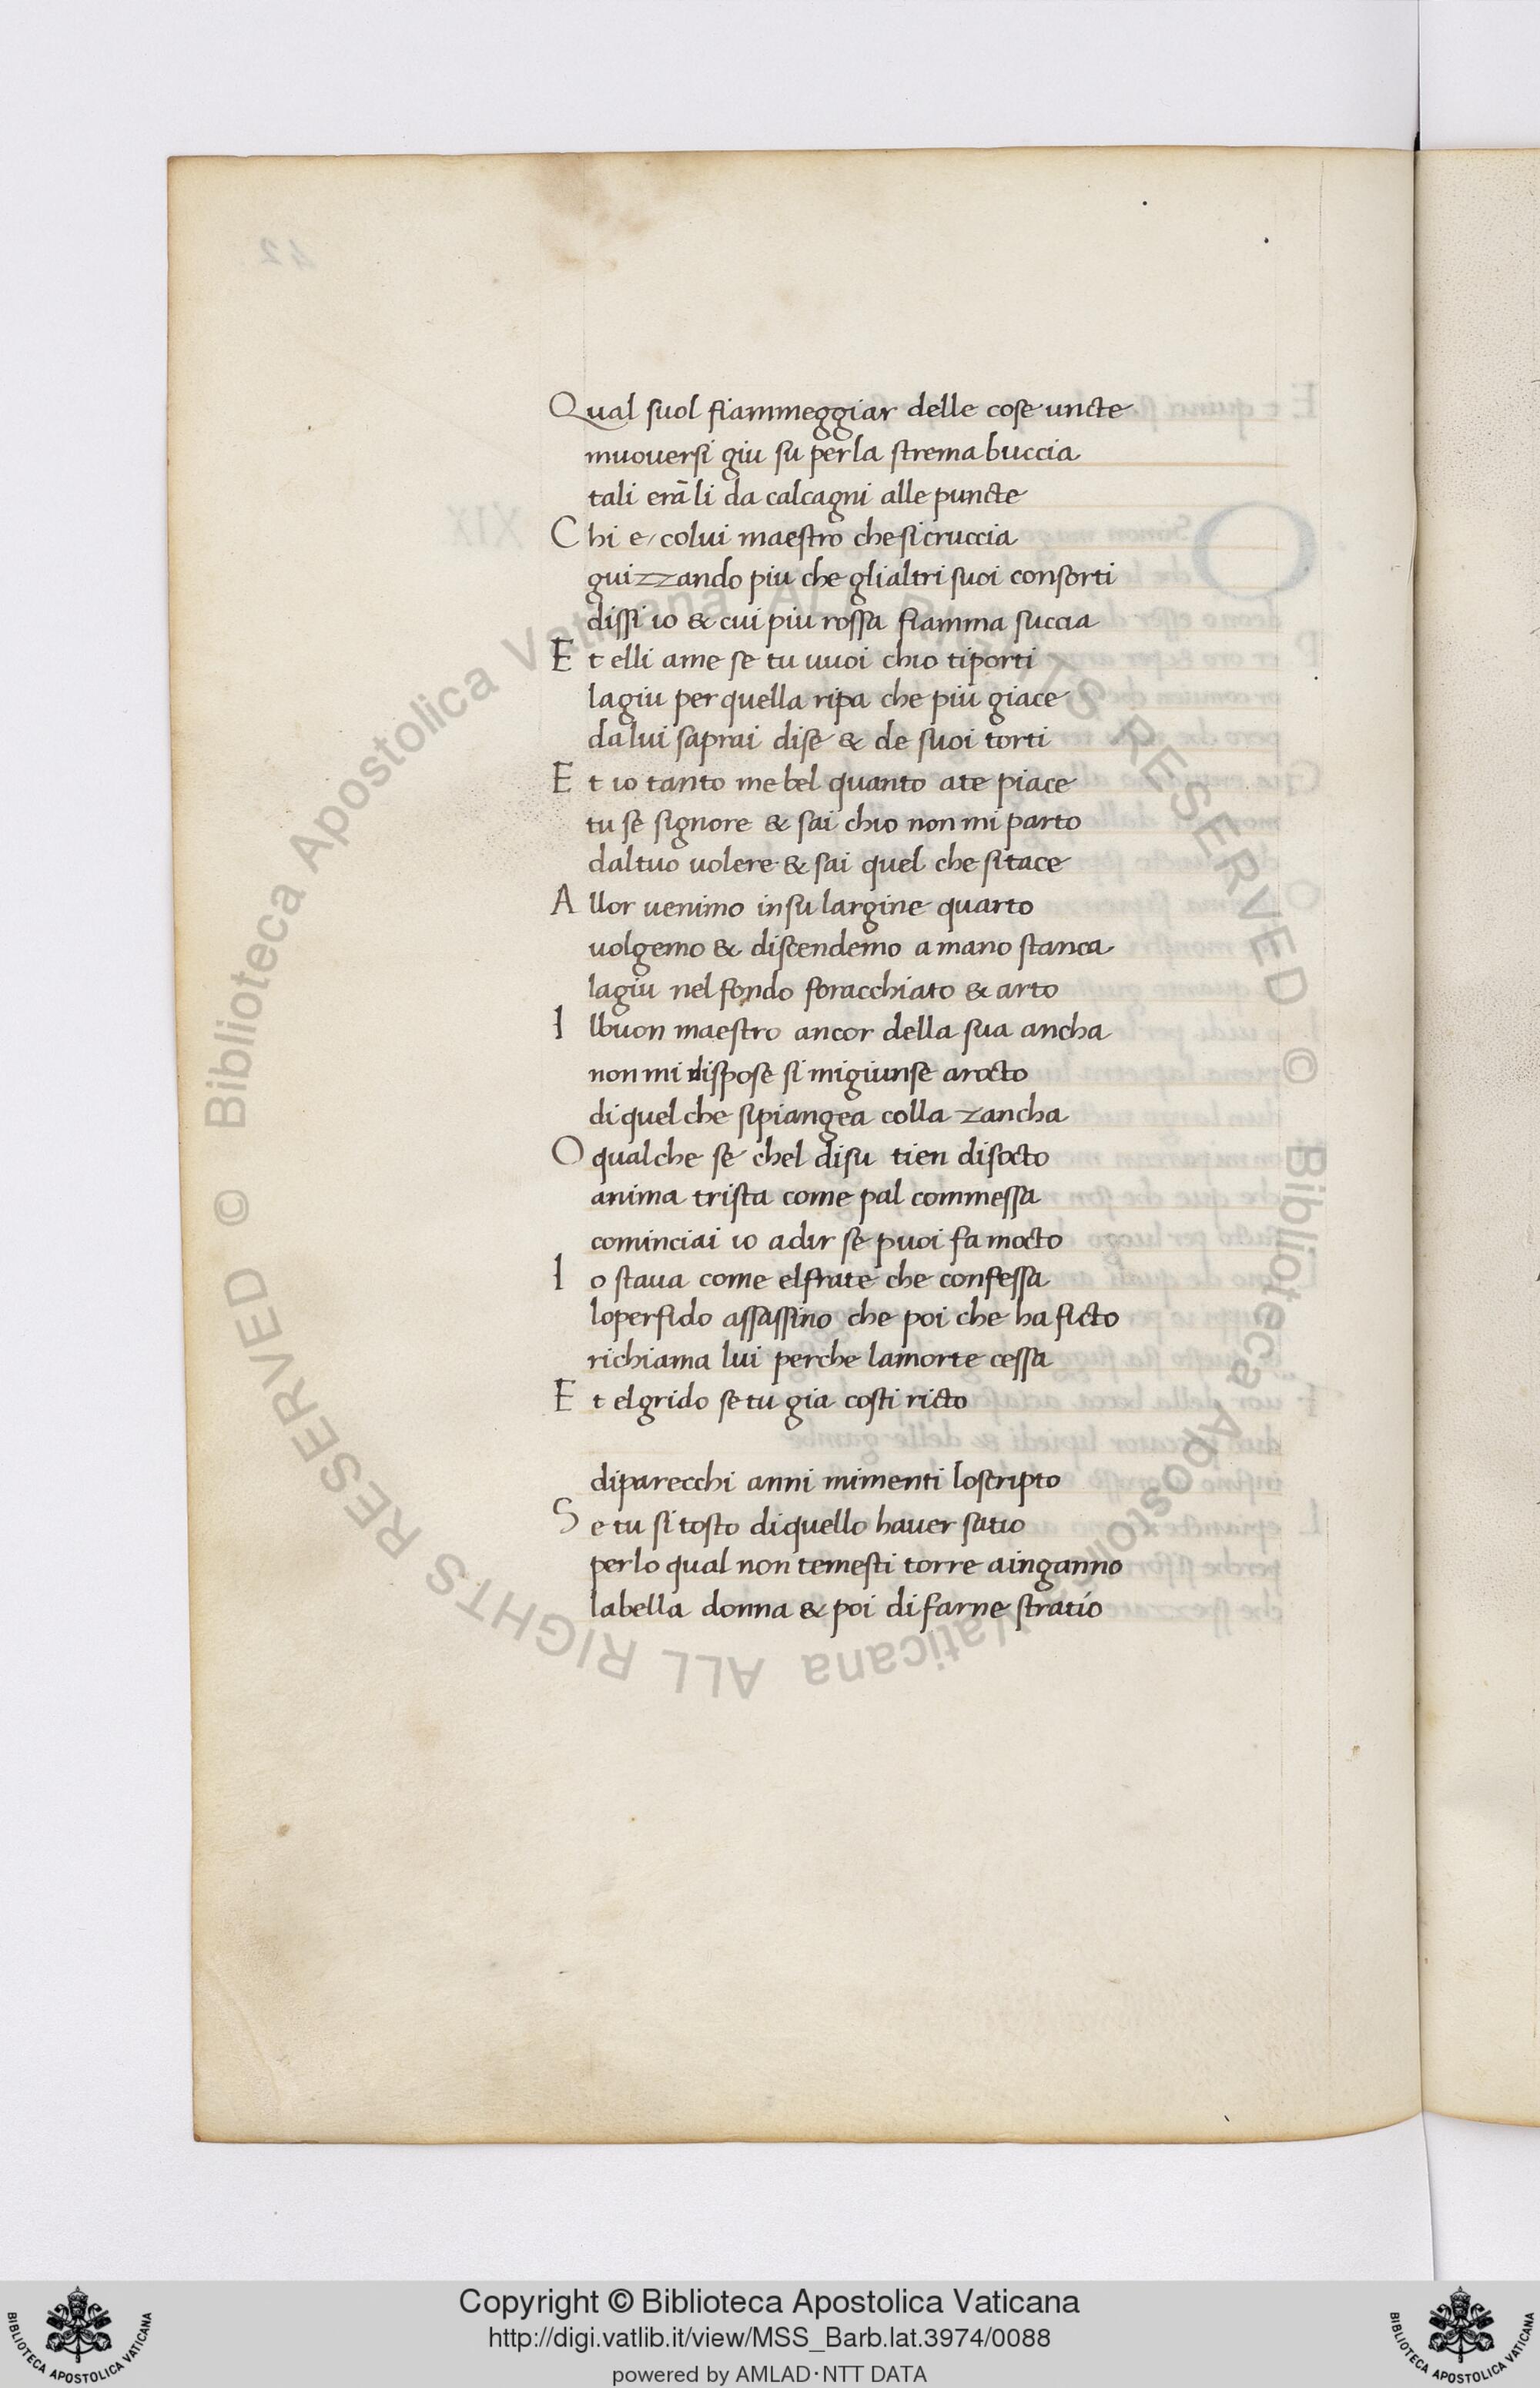 Qual suol fiammeggiar delle cose uncte
muouersi giu su perla strema buccia
tali erā li da calcagni alle puncte
C hi e/ colui maestro che sicruccia
guizzando piu che glialtri suoi consorti
dissi io & cui piu rossa fiamma succia
E t elli ame se tu uuoi chio tiporti
lagiu per quella ripa che piu giace
da lui saprai dise & de suoi torti
E t io tanto me bel quanto ate piace
tu se signore & sai chio non mi parto
daltuo uolere & sai quel che sitace
A llor uenimo insu largine quarto
uolgemo & discendemo a mano stanca
lagiu nel fondo foracchiato & arto
I lbuon maestro ancor della sua ancha
non mi dispose si migiunse arocto
di quel che sipiangea colla zancha
O qualche se chel disu tien disocto
anima trista come pal commessa
cominciai io adir se puoi fa mocto
I o staua come elfrate che confessa
loperfido assassino che poi che ha ficto
richiama lui perche lamorte cessa
E t elgrido se tu gia costi ricto
diparecchi anni mimenti loscripto
S e tu si tosto diquello hauer satio
perlo qual non temesti torre ainganno
labella donna & poi di farne stratio
© Biblioteca Apostolica Vaticana ALL RIGHTS RESERVED
© Biblioteca Apostolica Vaticana ALL RIGHTS RESERVED
Copyright © Biblioteca Apostolica Vaticana
http://digi.vatlib.it/view/MSS_Barb.lat.3974/0088
powered by AMLAD·NTT DATA
BIBLIOTECA APOSTOLICA VATICANA
BIBLIOTECA APOSTOLICA VATICANA